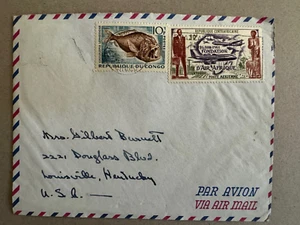 10F
REPUBLIQUE DU CONGO
REPUBLIQUE CENTRAFRICAINE
FONDATION
D'AIR AFRIQUE
POSTE AERIENNE
Mrs. Gilbert Burnett
2221 Douglass Blvd.
Louisville, Kentucky
U.S.A.
PAR AVION
VIA AIR MAIL